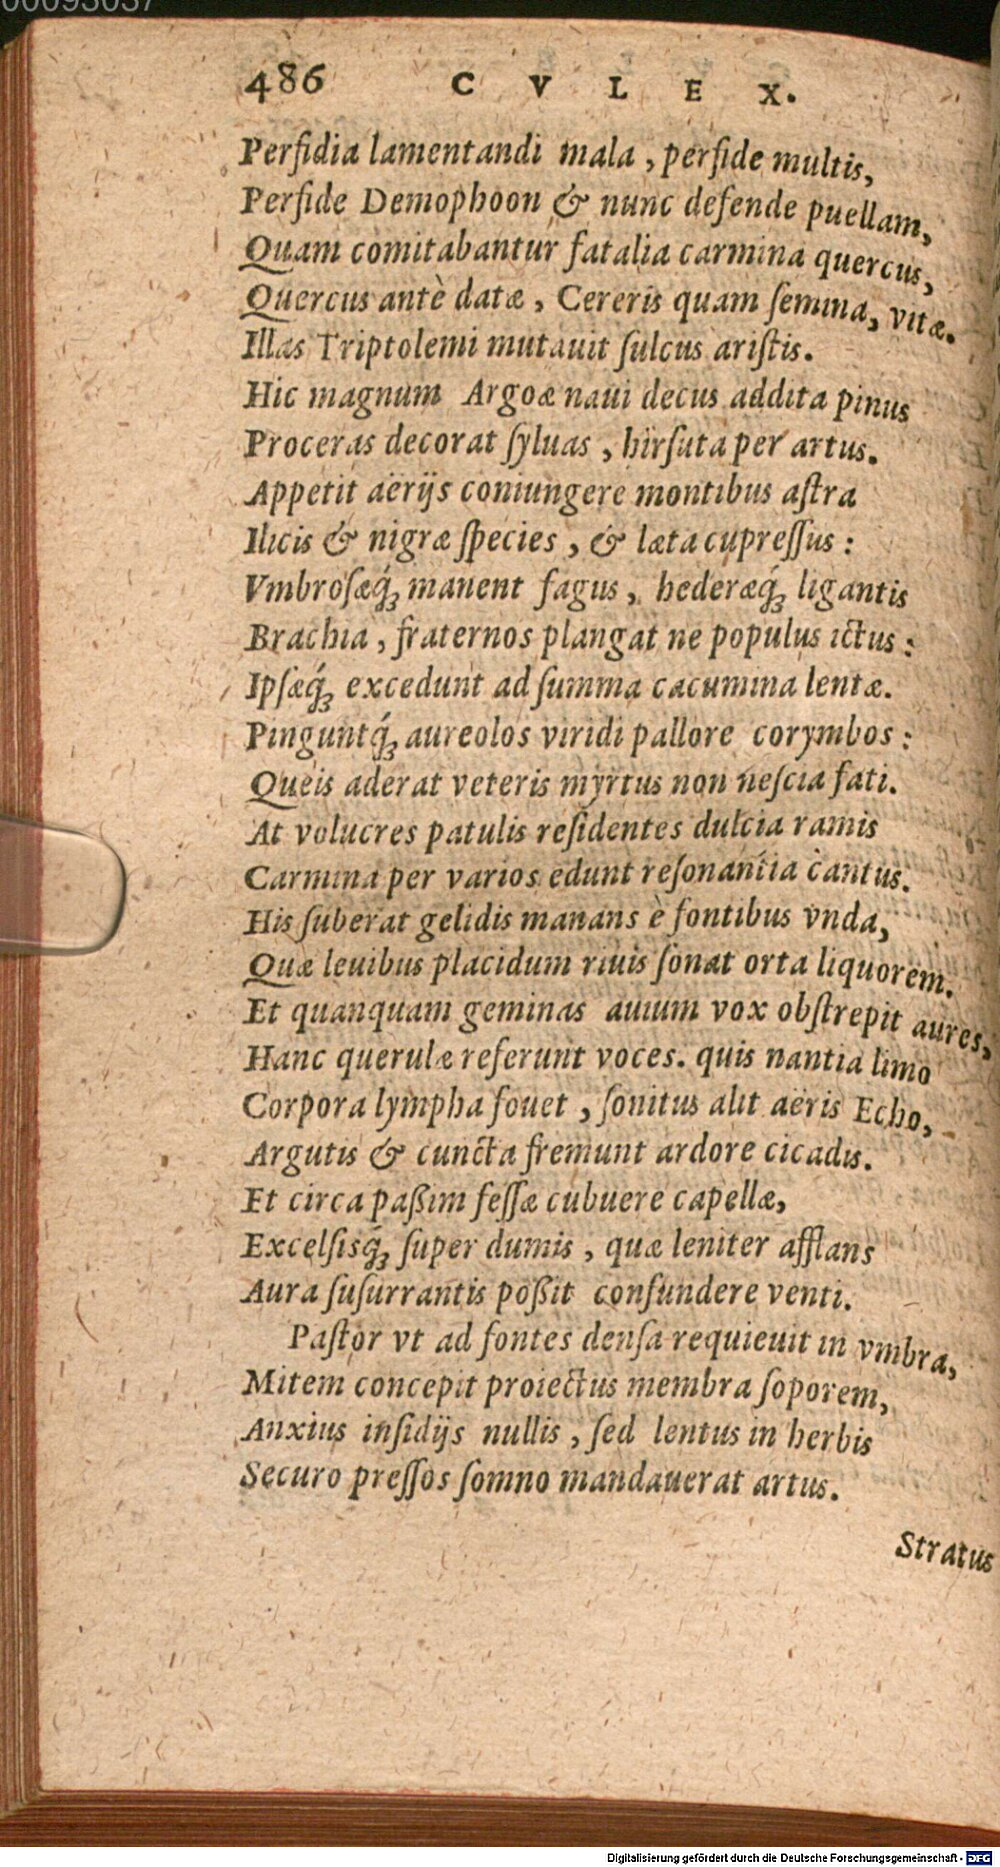 00093037
486 C V L E X.
Perfidia lamentandi mala, perfide multis,
Perfide Demophoon & nunc defende puellam,
Quam comitabantur fatalia carmina quercus,
Quercus antè datæ, Cereris quam ſemina, vitæ.
Illas Triptolemi mutauit ſulcus ariſtis.
Hic magnum Argoæ naui decus addita pinus
Proceras decorat ſyluas, hirſuta per artus.
Appetit aërijs coniungere montibus aſtra
Ilicis & nigræ ſpecies, & læta cupreſſus:
Vmbroſæq́ꝫ manent fagus, hederæq́ꝫ ligantis
Brachia, fraternos plangat ne populus ictus:
Ipſæq́ꝫ excedunt ad ſumma cacumina lentæ.
Pinguntq́ꝫ aureolos viridi pallore corymbos:
Queis aderat veteris myrtus non neſcia fati.
At volucres patulis reſidentes dulcia ramis
Carmina per varios edunt reſonantia cantus.
His ſuberat gelidis manans è fontibus vnda,
Quæ leuibus placidum riuis ſonat orta liquorem.
Et quanquam geminas auium vox obſtrepit aures,
Hanc querulæ referunt voces. quis nantia limo
Corpora lympha fouet, ſonitus alit aëris Echo,
Argutis & cuncta fremunt ardore cicadis.
Et circa paßim feſſæ cubuere capellæ,
Excelſisq́ꝫ ſuper dumis, quæ leniter afflans
Aura ſuſurrantis poßit confundere venti.
Paſtor vt ad fontes denſa requieuit in vmbra,
Mitem concepit proiectus membra ſoporem,
Anxius inſidijs nullis, ſed lentus in herbis
Securo preſſos ſomno mandauerat artus.
Stratus
Digitalisierung gefördert durch die Deutsche Forschungsgemeinschaft - DFG